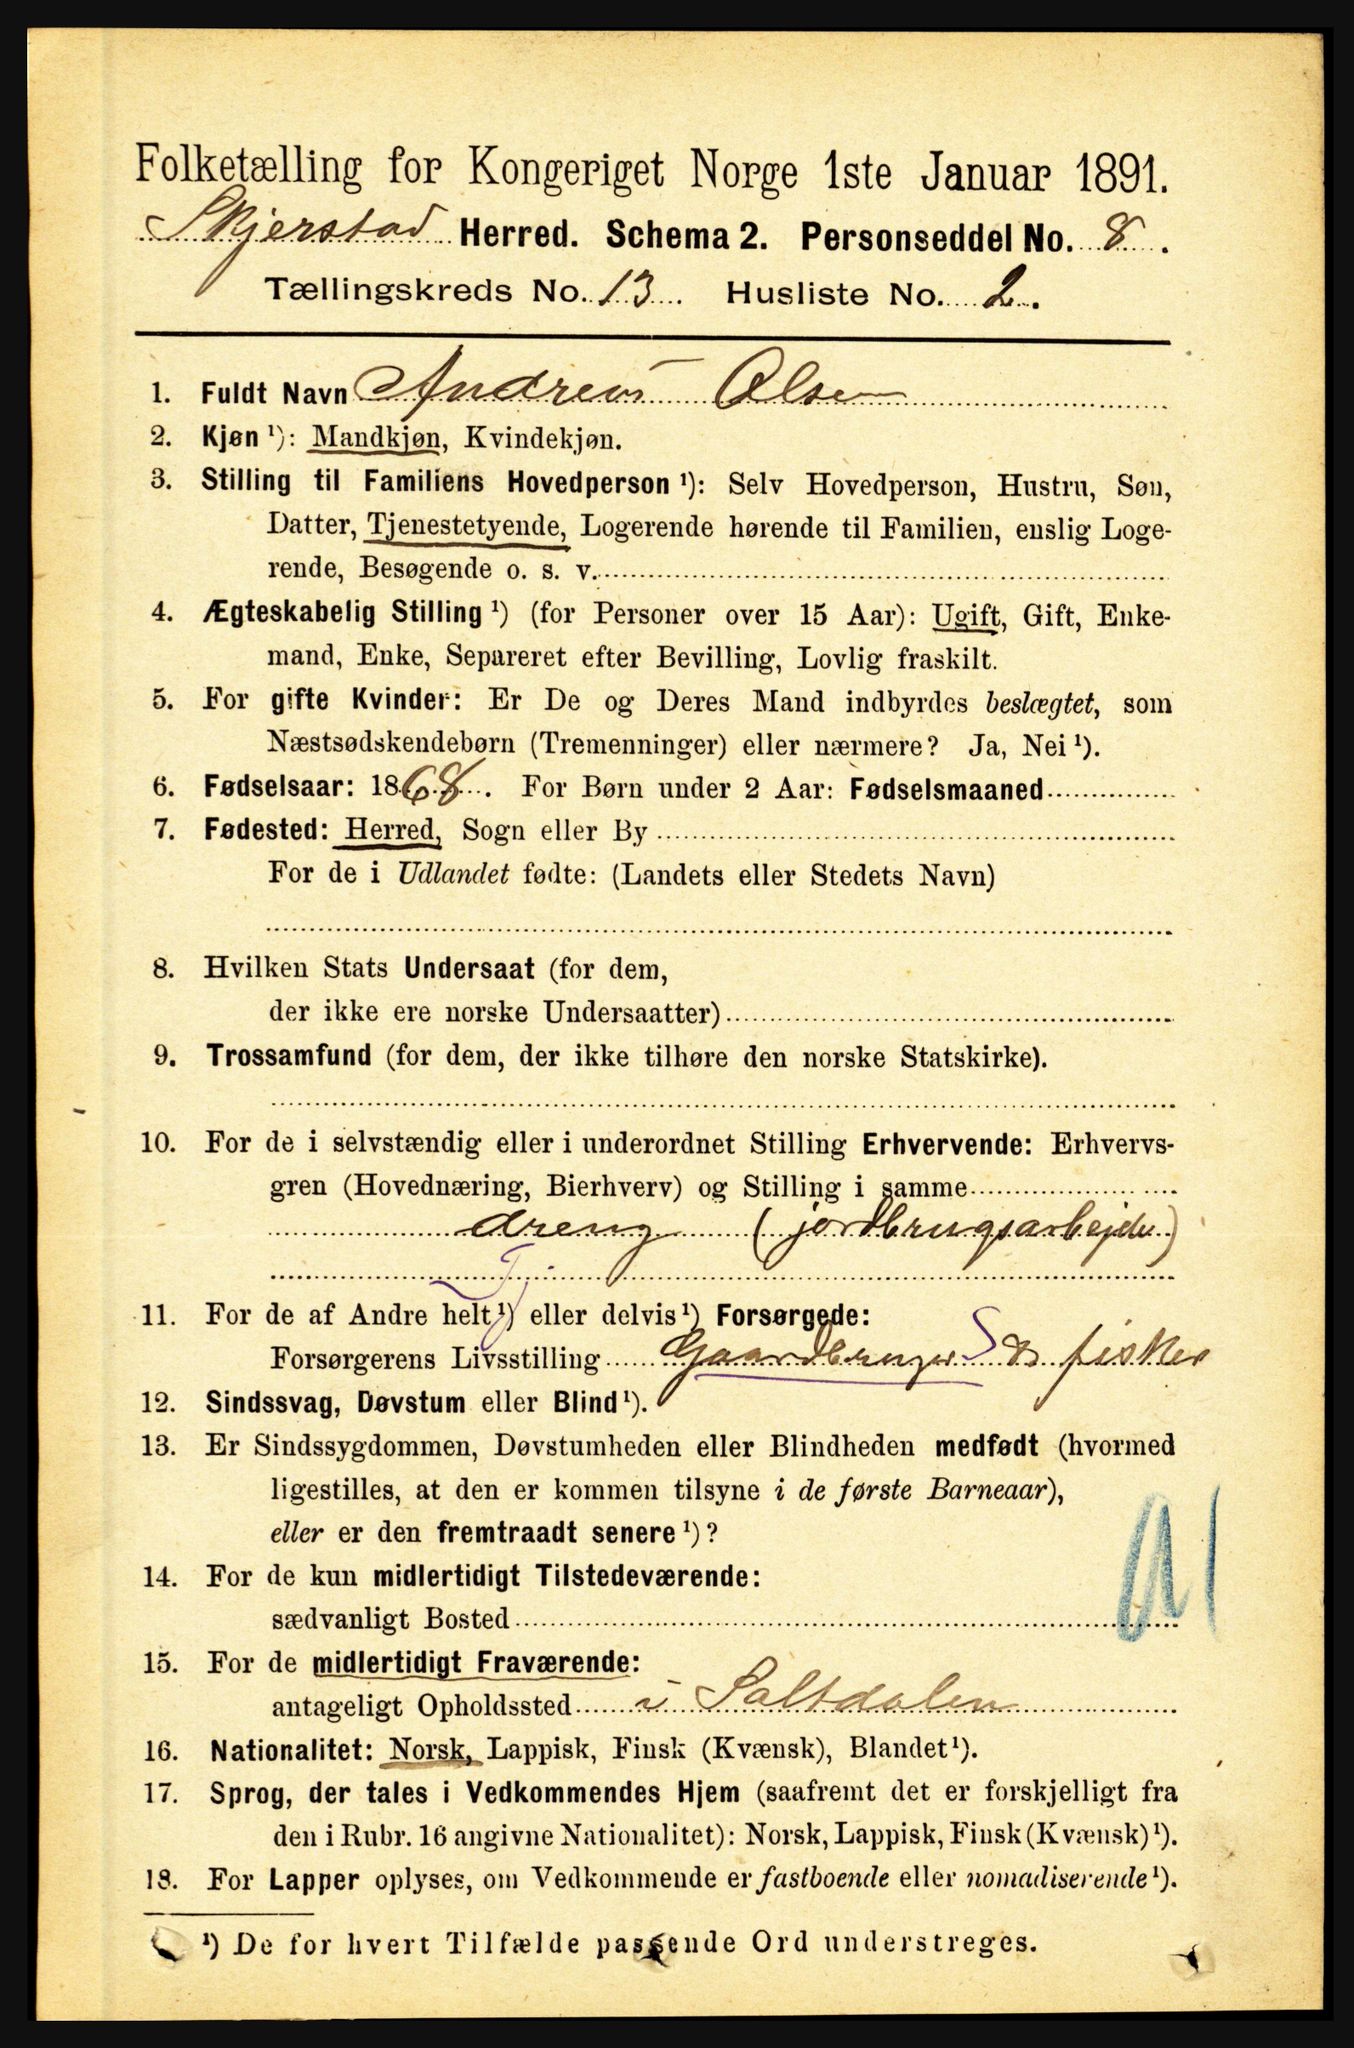 Folketælling for Kongeriget Norge 1ste Januar 1891.
Skjerstad Herred. Schema 2. Personseddel No. 8.
Tællingskreds No. 13. Husliste No. 2.
1. Fuldt Navn Andreas Olsen
2. Kjøn ¹): Mandkjøn, Kvindekjøn.
3. Stilling til Familiens Hovedperson ¹): Selv Hovedperson, Hustru, Søn,
Datter, Tjenestetyende, Logerende hørende til Familien, enslig Loge-
rende, Besøgende o. s. v.
4. Ægteskabelig Stilling ¹) (for Personer over 15 Aar): Ugift, Gift, Enke-
mand, Enke, Separeret efter Bevilling, Lovlig fraskilt.
5. For gifte Kvinder: Er De og Deres Mand indbyrdes beslægtet, som
Næstsødskendebørn (Tremenninger) eller nærmere? Ja, Nei ¹).
6. Fødselsaar: 1868. For Børn under 2 Aar: Fødselsmaaned
7. Fødested: Herred, Sogn eller By
For de i Udlandet fødte: (Landets eller Stedets Navn)
8. Hvilken Stats Undersaat (for dem,
der ikke ere norske Undersaatter)
9. Trossamfund (for dem, der ikke tilhøre den norske Statskirke).
10. For de i selvstændig eller i underordnet Stilling Erhvervende: Erhvervs-
gren (Hovednæring, Bierhverv) og Stilling i samme
dreng (jordbrugsarbejde)
Tj
11. For de af Andre helt ¹) eller delvis ¹) Forsørgede:
Forsørgerens Livsstilling Gaardbruger S & fisker
12. Sindssvag, Døvstum eller Blind ¹).
13. Er Sindssygdommen, Døvstumheden eller Blindheden medfødt (hvormed
ligestilles, at den er kommen tilsyne i de første Barneaar),
eller er den fremtraadt senere ¹)?
14. For de kun midlertidigt Tilstedeværende:
sædvanligt Bosted
15. For de midlertidigt Fraværende:
antageligt Opholdssted i Saltdalen
16. Nationalitet: Norsk, Lappisk, Finsk (Kvænsk), Blandet ¹).
17. Sprog, der tales i Vedkommendes Hjem (saafremt det er forskjelligt fra
den i Rubr. 16 angivne Nationalitet): Norsk, Lappisk, Finsk (Kvænsk) ¹).
18. For Lapper oplyses, om Vedkommende er fastboende eller nomadiserende ¹).
¹) De for hvert Tilfælde passende Ord understreges.